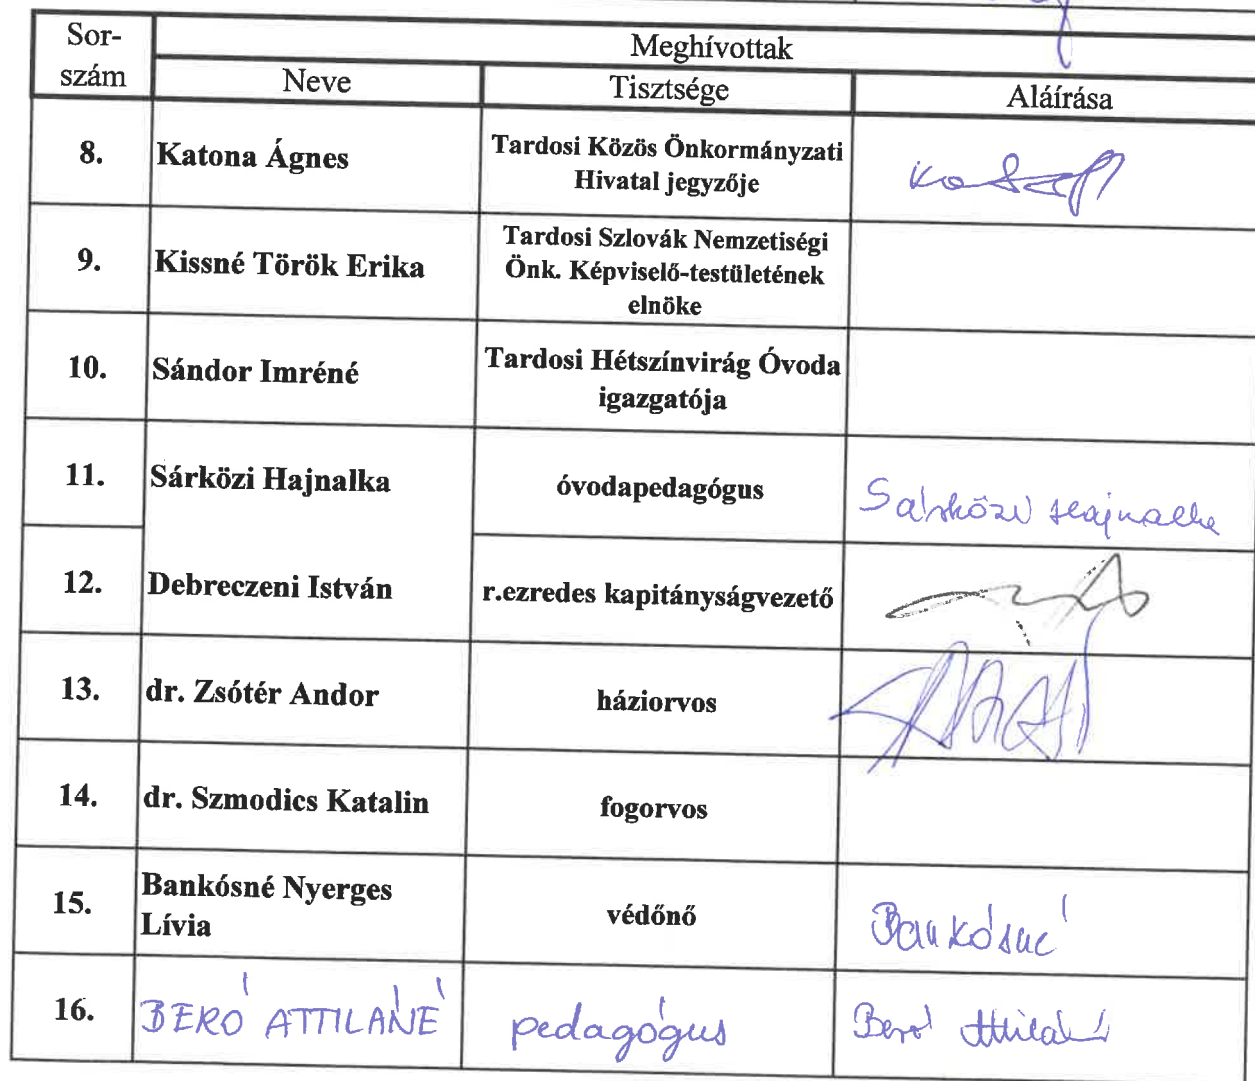 Sor-
szám
Meghívottak
Neve
Tisztsége
Aláírása
8.
Katona Ágnes
Tardosi Közös Önkormányzati
Hivatal jegyzője
9.
Kissné Török Erika
Tardosi Szlovák Nemzetiségi
Önk. Képviselő-testületének
elnöke
10.
Sándor Imréné
Tardosi Hétszínvirág Óvoda
igazgatója
11.
Sárközi Hajnalka
óvodapedagógus
Sárközi Hajnalka
12.
Debreczeni István
r.ezredes kapitányságvezető
13.
dr. Zsótér Andor
háziorvos
14.
dr. Szmodics Katalin
fogorvos
15.
Bankósné Nyerges
Lívia
védőnő
Bankósné
16.
BERÓ ATTILÁNÉ
pedagógus
Beró Attiláné